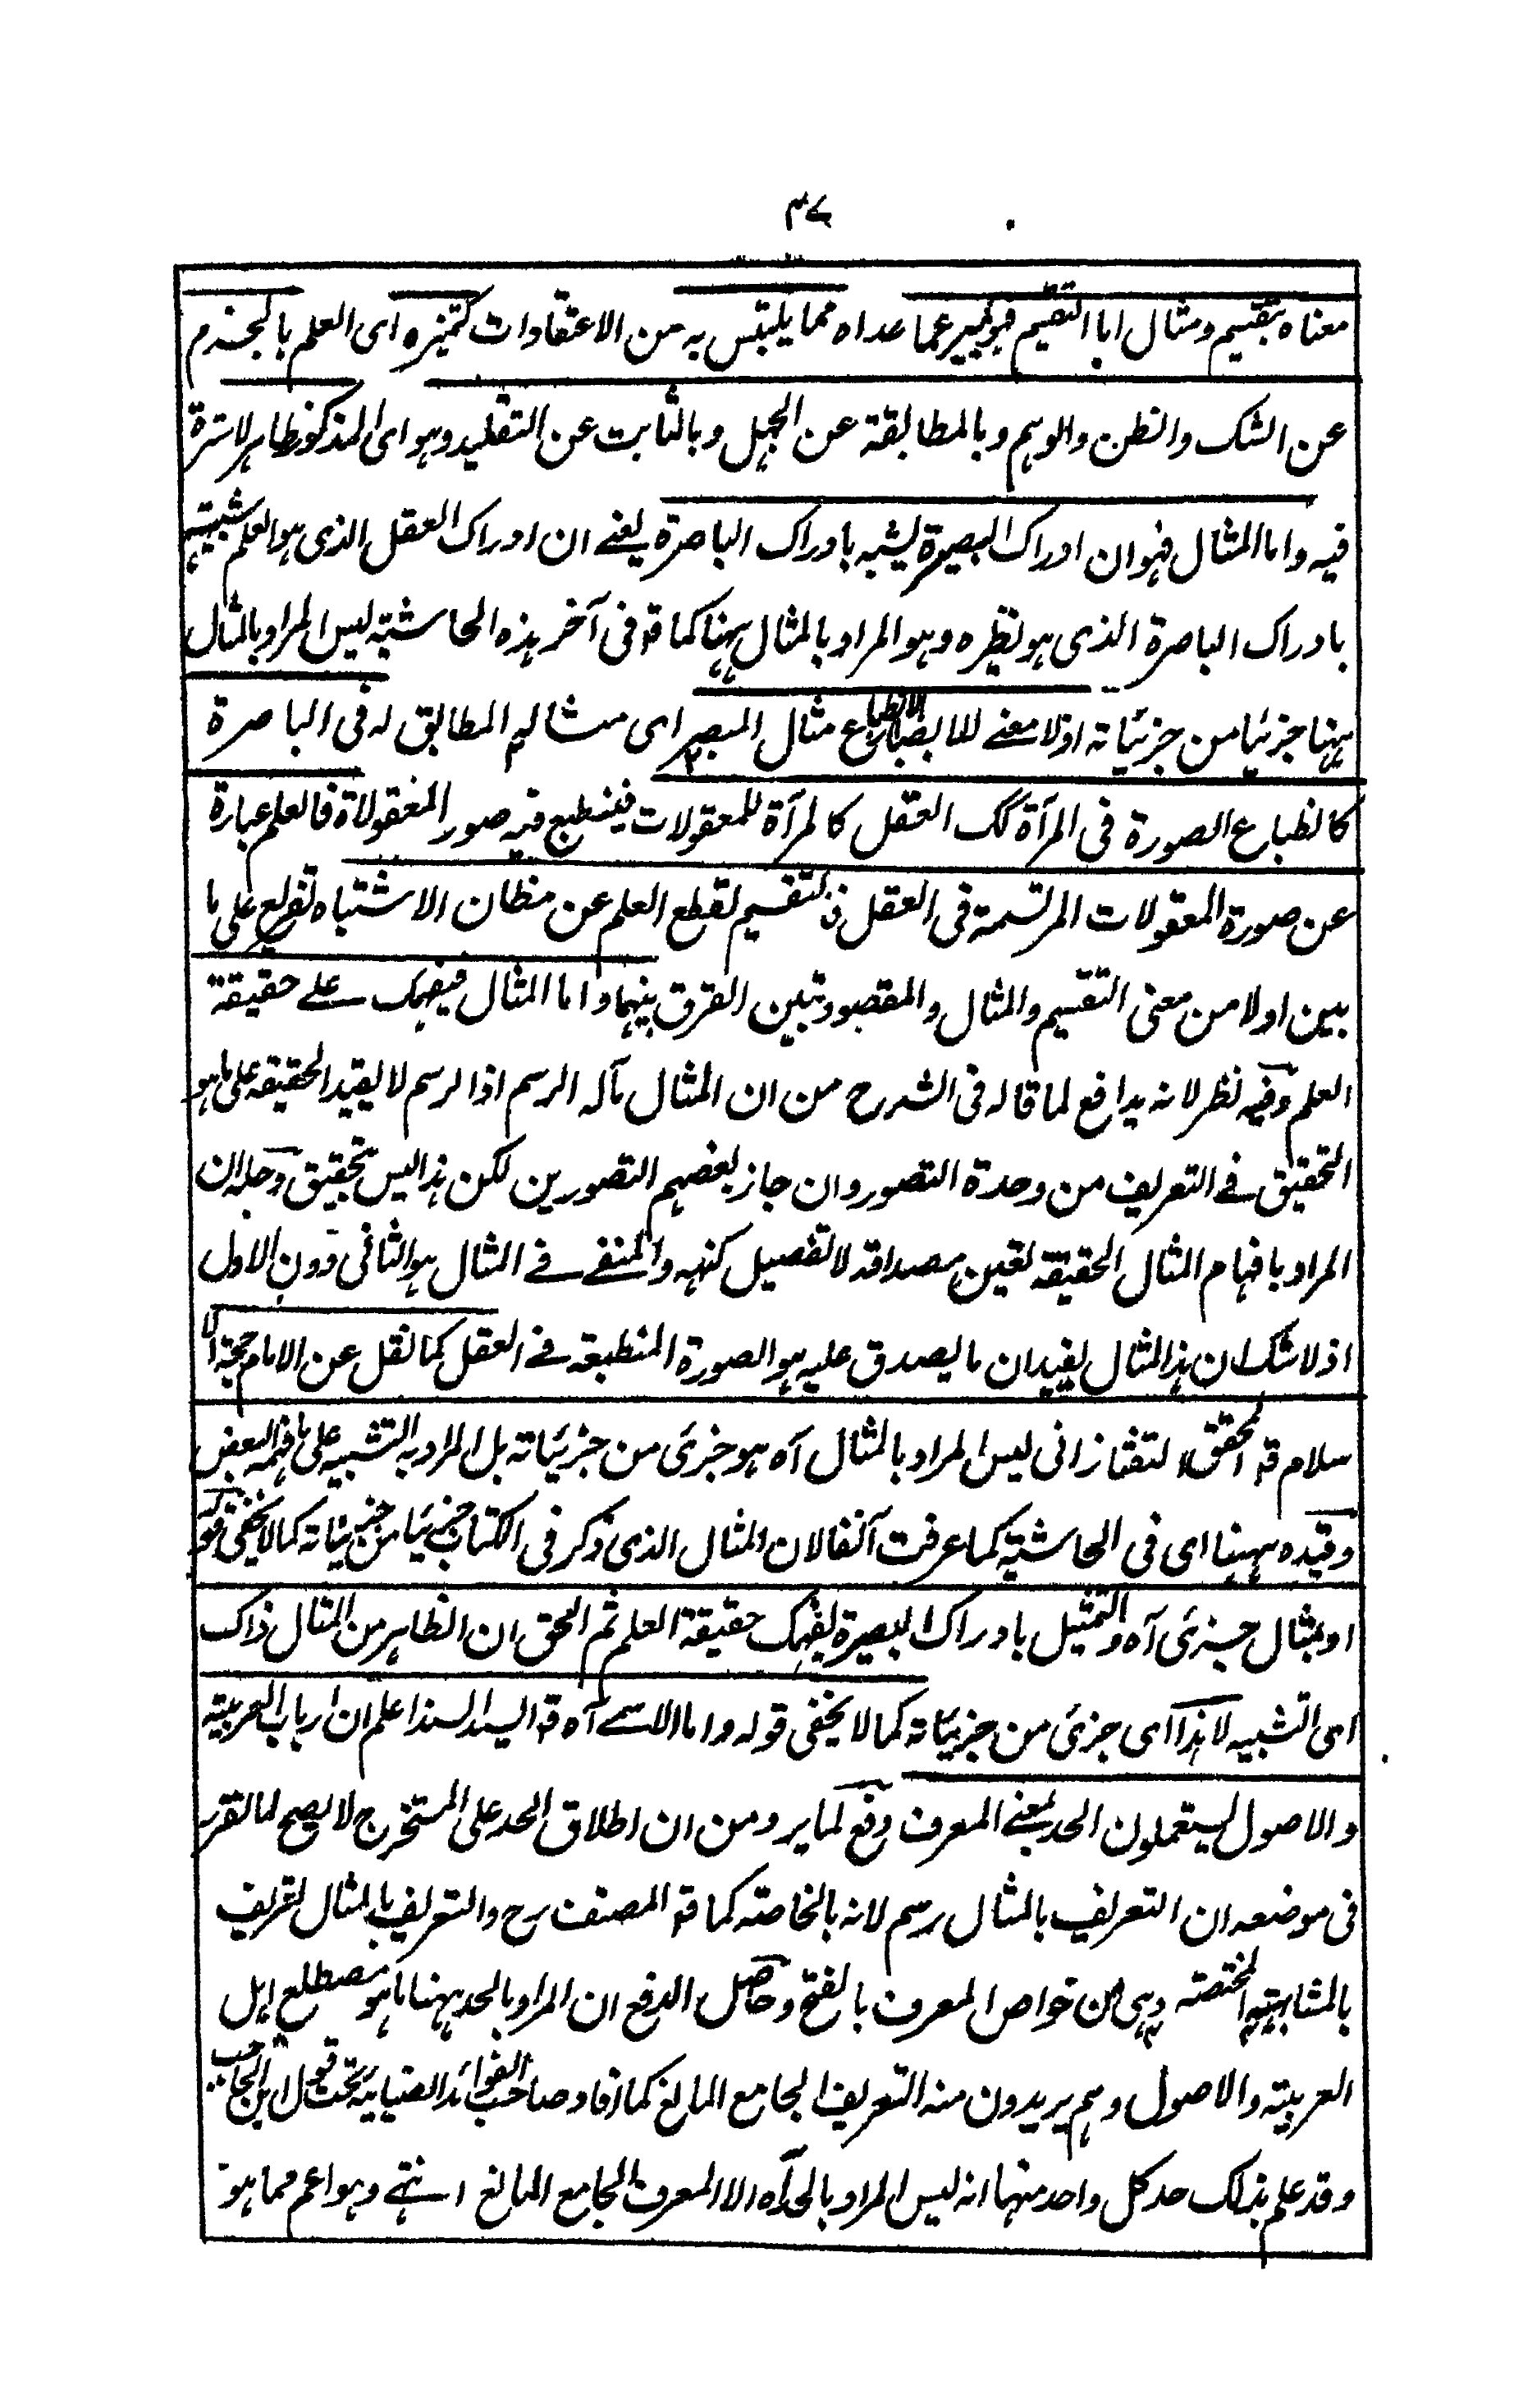 ۳۷
معناه بتقسيم ومثال اما التقسيم فهو تمييز عما عداه مما يلتبس به من الاعتقادات كتميزه اى العلم بالجزم
عن الشك والظن والوهم وبالمطابقة عن الجهل وبالثابت عن التقليد وهو اى المذكور ظاهر لا سترة
فيه واما المثال فهو ان ادراك البصيرة يشبه بادراك الباصرة يعنے ان ادراك العقل الذى هو العلم شبيه
بادراك الباصرة الذى هو نظيره وهو المراد بالمثال ههنا كما قه فى آخر هذه الحاشية ليس المراد بالمثال
ههنا جزئيا من جزئياته اولا معنے للابصار الا انطباع مثال المبصر اى مثاله المطابق له فى الباصرة
كانطباع الصورة فى المرآة كك العقل كالمرآة للمعقولات فينطبع فيه صور المعقولاة فالعلم عبارة
عن صورة المعقولات المرتسمة فى العقل فالتقسيم لقطع العلم عن مظان الاشتباه تفريع على ما
بين اولا من معنى التقسيم والمثال والمقصود تبين الفرق بينهما واما المثال فيفهمك علے حقيقة
العلم وفيه نظر لانه يدافع لما قاله فى الشرح من ان المثال مآله الرسم اذا لرسم لا يفيد الحقيقة على ما هو
التحقيق فے التعريف من وحدة التصور وان جاز بعضهم التصورين لكن هذا ليس تحقيق وحله ان
المراد بافهام المثال الحقيقة تعين مصداقه لا تفصيل كنهه والمنفے فے المثال هو الثانى دون الاول
اذ لا شك ان هذا المثال يفيد ان ما يصدق عليه هو الصورة المنطبعة فے العقل كما نقل عن الامام حجة الا
سلام قه المحقق التفتازانى ليس المراد بالمثال آه هو جزئ من جزئياته بل المراد به التشبيه على ما فهمه البعض
وقيده ههنا اى فى الحاشية كما عرفت آنفا لان المثال الذى ذكر فى الكتاب جزئيا من جزئياته كما لا يخفى قوله
او بمثال جزئى آه والتمثيل بادراك البصيرة يفهمك حقيقة العلم ثم الحق ان الظاهر من المثال ذاك
اى التشبيه لا هذا اى جزئ من جزئياته كما لا يخفى قوله واما الاسمے آه قه السيد السند اعلم ان ارباب العربية
والاصول يستعملون الحد بمعنے المعرف دفع لما يرد من ان اطلاق الحد على المستخرج لا يصح لما تقرر
فى موضعه ان التعريف بالمثال رسم لانه بالخاصة كما قه المصنف رح والتعريف بالمثال تعريف
بالمشابهة المختصة وهى من خواص المعرف بالفتح وحاصل الدفع ان المراد بالحد ههنا ما هو مصطلح اهل
العربية والاصول وهم يريدون منه التعريف الجامع المانع كما افاد صاحب الفوائد الضيائية تحت قول ابن الحاجب
وقد علم بذلك حد كل واحد منها انه ليس المراد بالحد آه الا المعرف الجامع المانع انتہے وهو اعم مما هو